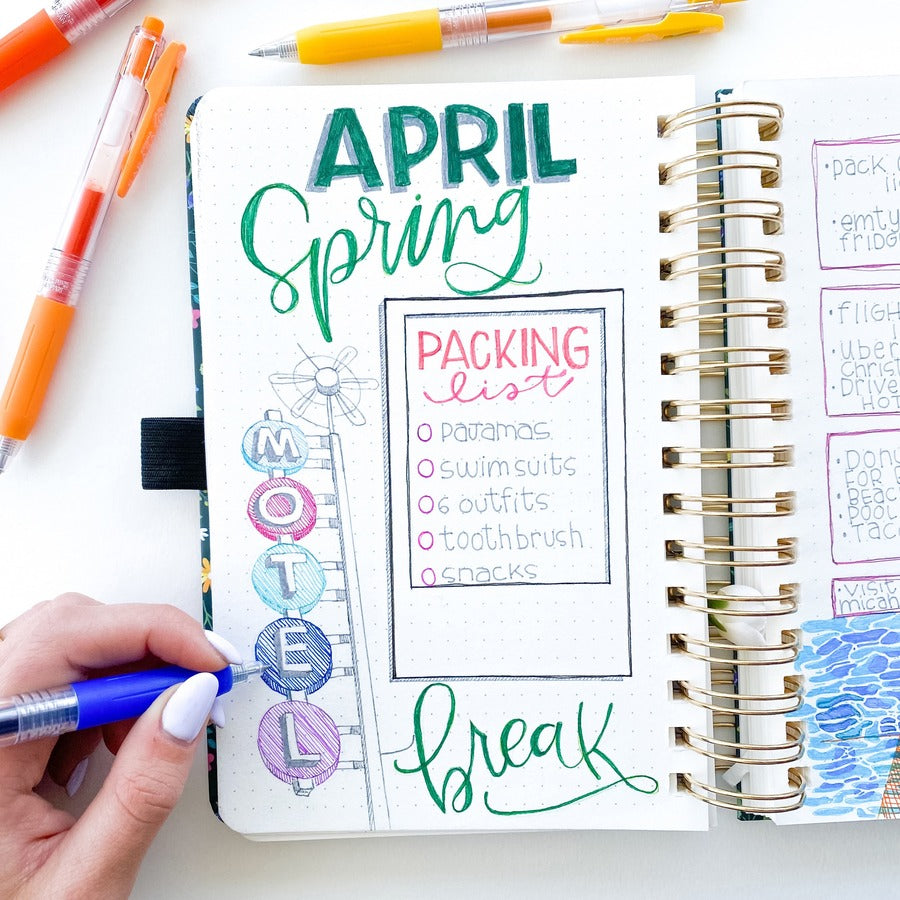 APRIL
Spring
PACKING
list
pajamas
swimsuits
6 outfits
toothbrush
snacks
MOTEL
break
• pack
• emty
FRIDG
• FLIGH
• uber
CHRIST
• DRIVE
HOT
• DONU
FOR
• BEAC
• POOL
• TAC
• VISIT
micah